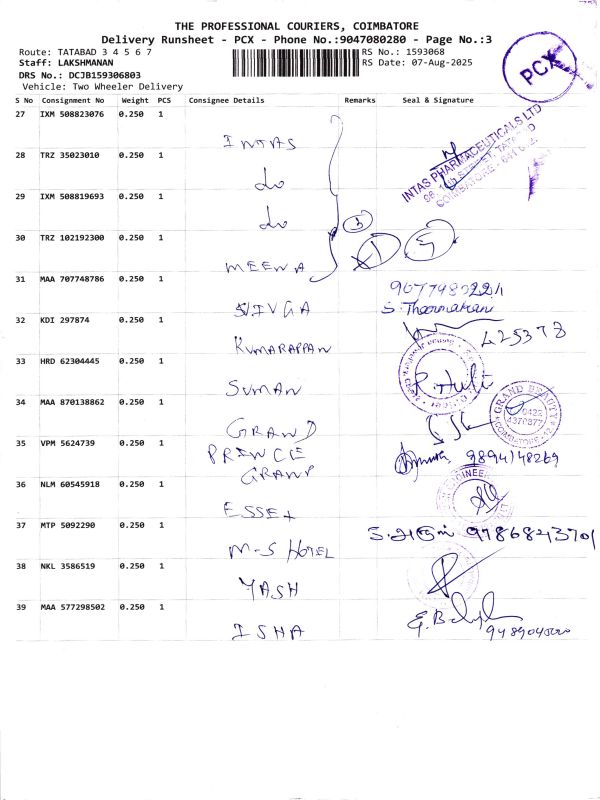 THE PROFESSIONAL COURIERS, COIMBATORE
Delivery Runsheet - PCX - Phone No.:9047080280 - Page No.:3
Route: TATABAD 3 4 5 6 7
RS No.: 1593068
Staff: LAKSHMANAN
RS Date: 07-Aug-2025
DRS No.: DCJB159306803
Vehicle: Two Wheeler Delivery
PCX
S No Consignment No Weight PCS Consignee Details Remarks Seal & Signature
27 IXM 508823076 0.250 1
INTAS
INTAS PHARMACEUTICALS LTD
28 TRZ 35023010 0.250 1
do
29 IXM 508819693 0.250 1
do
3
30 TRZ 102192300 0.250 1
MEENA
31 MAA 707748786 0.250 1
32 KDI 297874 0.250 1
KUMARAPPAN
425378
33 HRD 62304445 0.250 1
SUMAN
34 MAA 870138862 0.250 1
GRAND
GRAND BEAUTY
0422
COIMBATORE - 12
35 VPM 5624739 0.250 1
PRINCE
GRAND
9894148269
36 NLM 60545918 0.250 1
37 MTP 5092290 0.250 1
M-S HOTEL
9786843701
38 NKL 3586519 0.250 1
YASH
39 MAA 577298502 0.250 1
ISHA